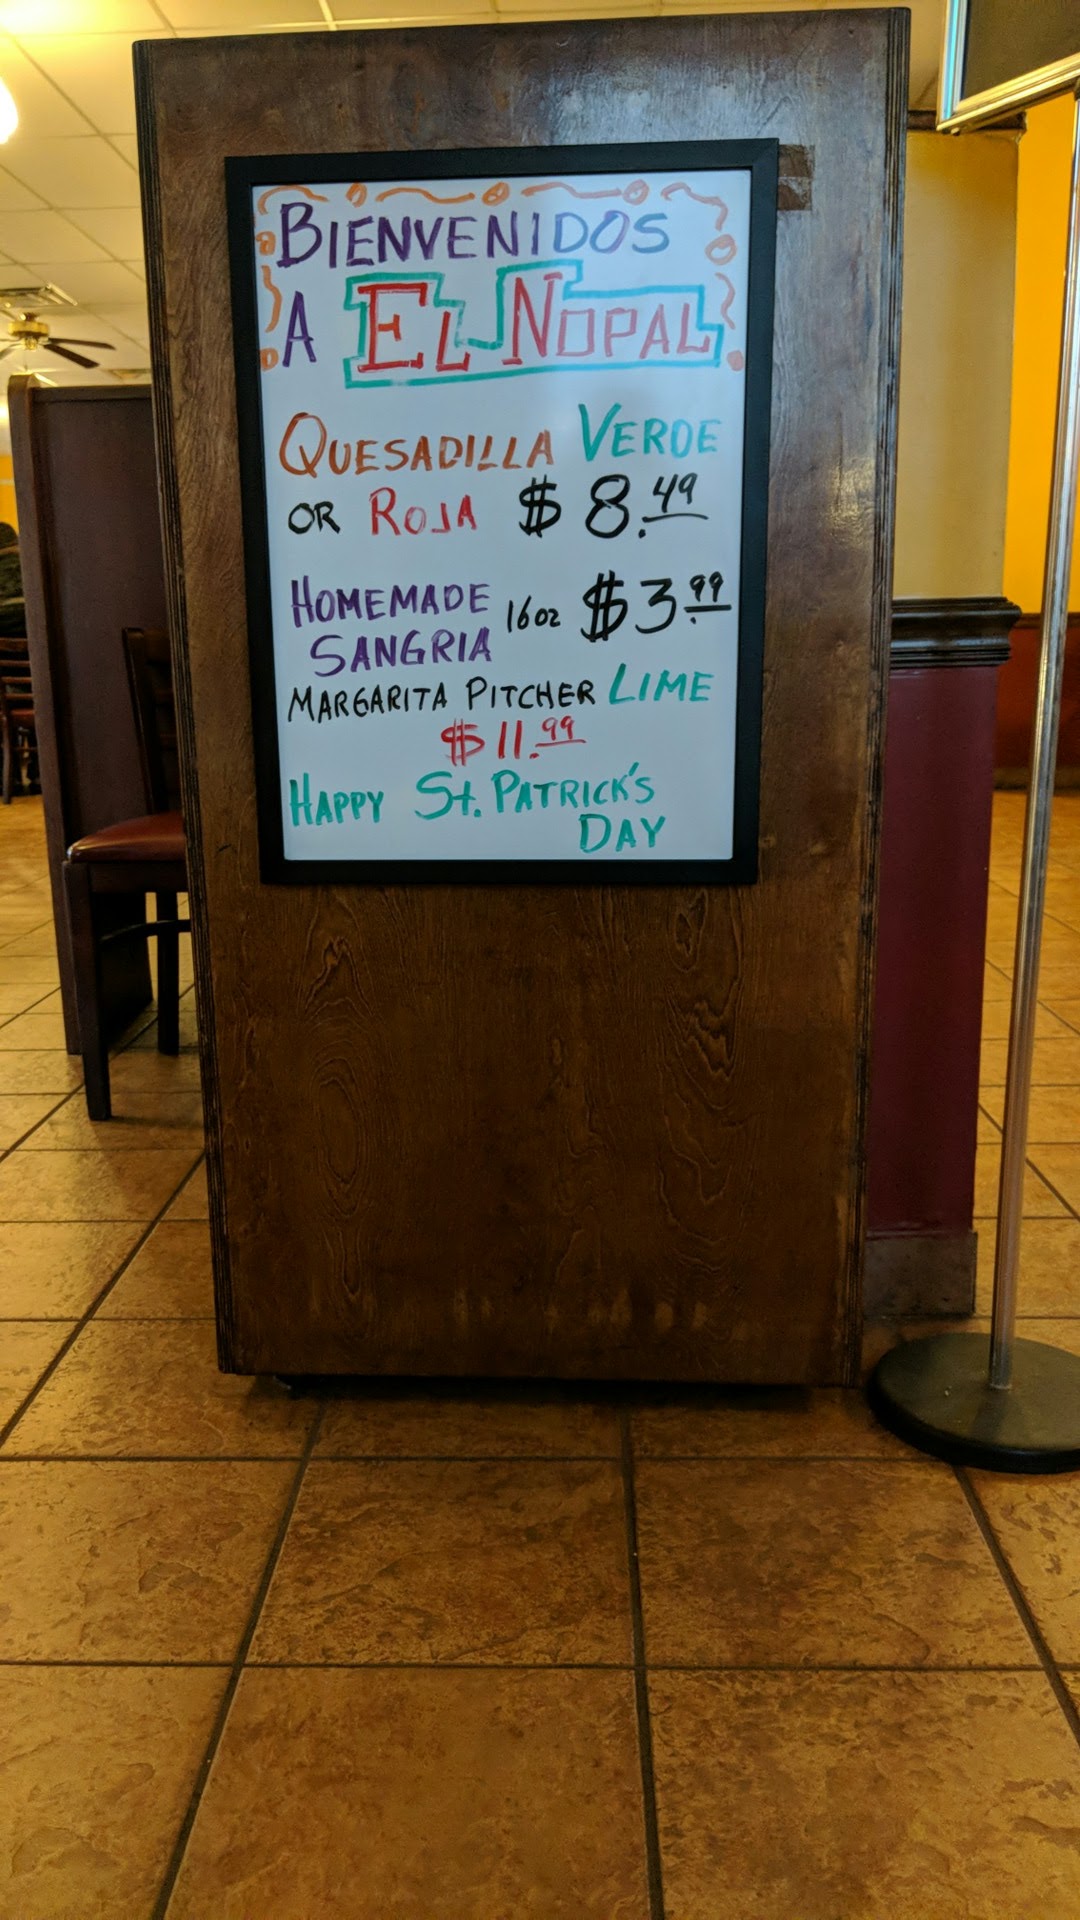 BIENVENIDOS
A EL NOPAL
QUESADILLA VERDE
OR ROJA $8.49
HOMEMADE
SANGRIA 16oz $3.99
MARGARITA PITCHER LIME
$11.99
HAPPY St. PATRICK'S
DAY